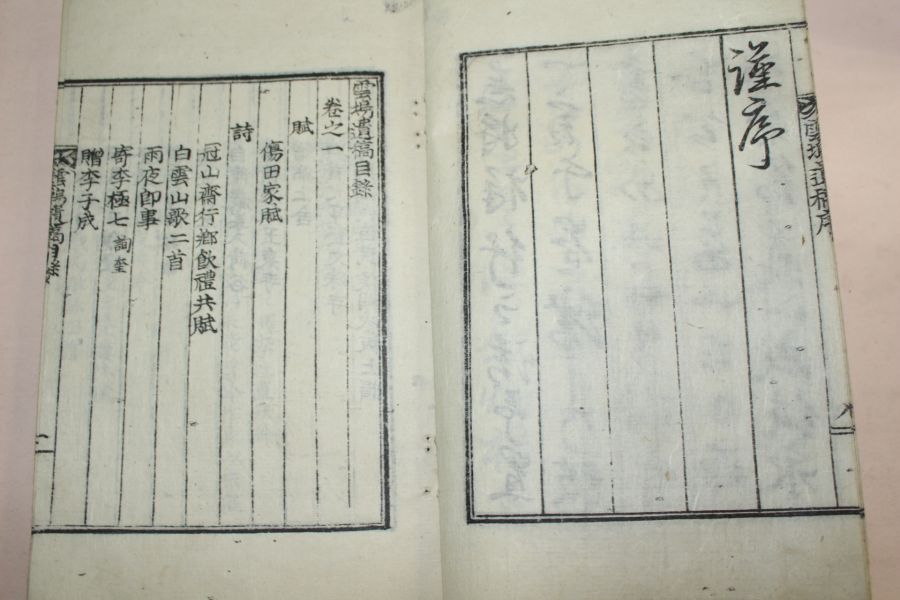 謹序
雲塢遺稿序
雲塢遺稿目錄
卷之一
賦
傷田家賦
詩
冠山齋行鄉飮禮共賦
白雲山歌二首
雨夜卽事
寄李極七 詢奎
贈李子成
雲塢遺稿目錄
一